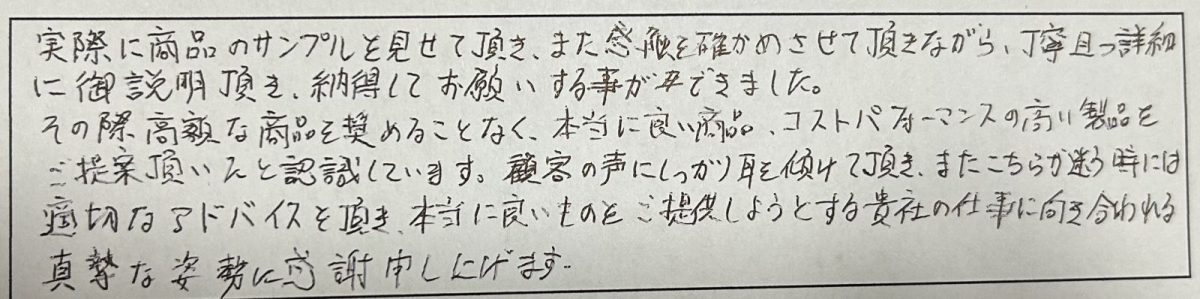 実際に商品のサンプルを見せて頂き、また感触を確かめさせて頂きながら、丁寧且つ詳細
に御説明頂き、納得してお願いする事ができました。
その際高額な商品を奨めることなく、本当に良い商品、コストパフォーマンスの高い製品を
ご提案頂いたと認識しています。顧客の声にしっかり耳を傾けて頂き、またこちらが迷う時には
適切なアドバイスを頂き、本当に良いものをご提供しようとする貴社の仕事に向き合われる
真摯な姿勢に感謝申し上げます。